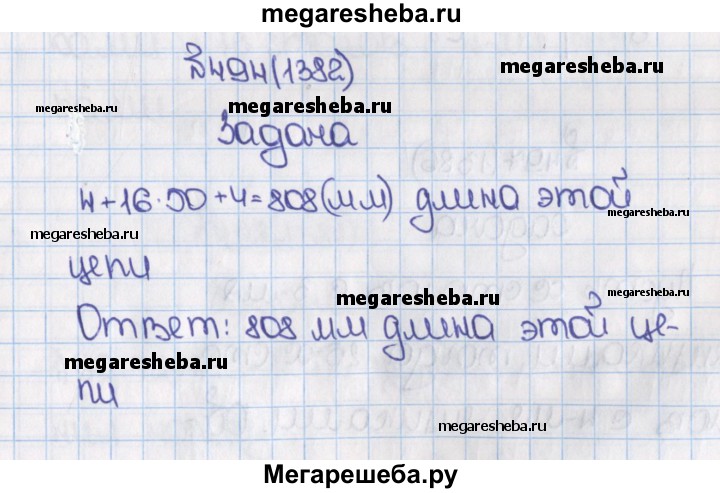 megaresheba.ru
№494(1382)
megaresheba.ru
megaresheba.ru
megaresheba.ru
Задача
4+16·50+4=808(мм) длина этой
megaresheba.ru
megaresheba.ru
цепи
megaresheba.ru
Ответ: 808 мм длина этой це-
megaresheba.ru
пи
megaresheba.ru
Мегарешеба.ру